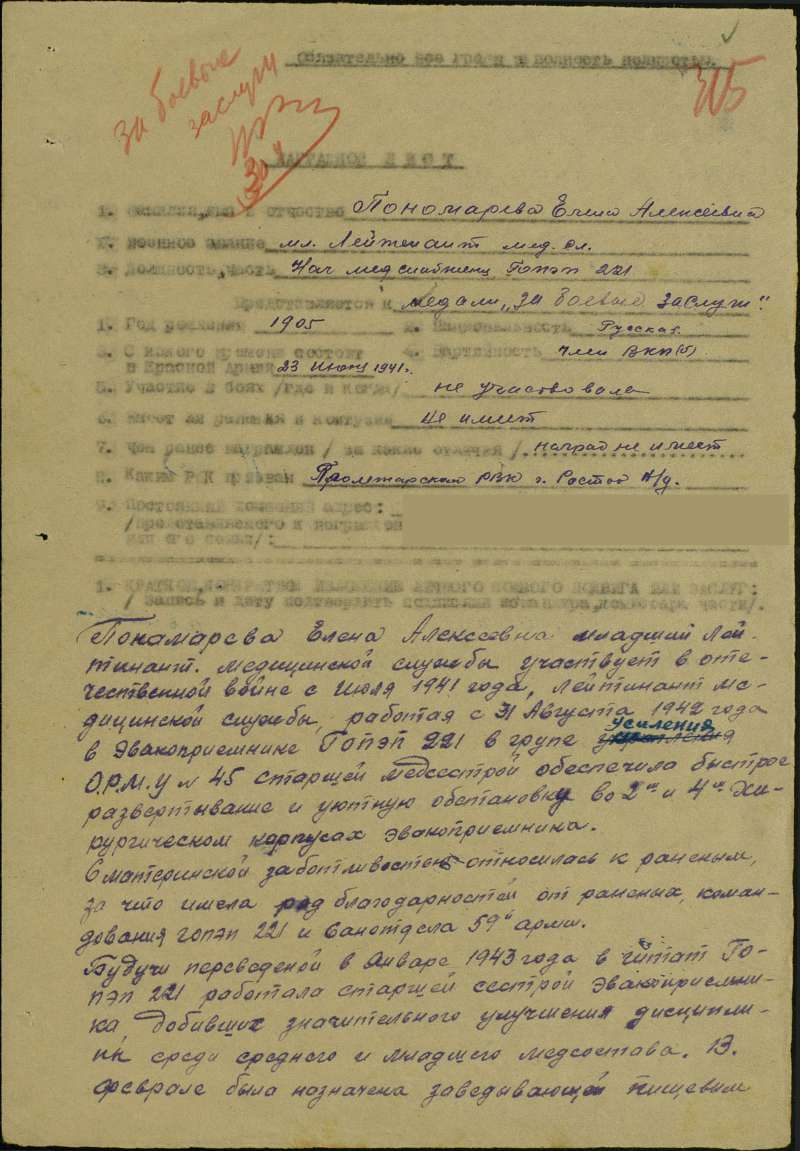 Обязательно все графы заполнять полностью.
315
За боевые
заслуги
НАГРАДНОЙ ЛИСТ
1. Фамилия, имя и отчество Пономарева Елена Алексеевна
2. Военное звание мл. Лейтенант мед. сл.
3. Должность, часть Нач мед снабжения Гопэп 221
Представляется к медали „За боевые заслуги".
1. Год рождения 1905 2. Национальность Русская
3. С какого времени состоит 4. Партийность член ВКП(б)
в Красной Армии 23 июня 1941 г.
5. Участие в боях /где и когда/ не участвовала
6. Имеет ли ранения и контузии не имеет
7. Чем ранее награжден / за какие отличия / наград не имеет
8. Каким РВК призван Пролетарским РВК г. Ростов н/д.
9. Постоянный домашний адрес:
/представляемого к награждению
или его семьи/:
1. КРАТКОЕ, КОНКРЕТНОЕ ИЗЛОЖЕНИЕ ЛИЧНОГО БОЕВОГО ПОДВИГА ИЛИ ЗАСЛУГ:
/ запись и дату подтвердить подписями командира, комиссара части/.
Понамарева Елена Алексеевна младший лей-
тинант. медицинской службы участвует в оте-
чественной войне с июля 1941 года, лейтинант ме-
дицинской службы, работая с 31 Августа 1942 года
в эвакоприемнике Гопэп 221 в групе усиления
О.Р.М.У № 45 старшей медсестрой обеспечила быстрое
развертывание и уютную обстановку во 2ом и 4ом Хи-
рургическом корпусах эвакоприемника.
С материнской заботливостью относилась к раненым,
за что имела ряд благодарностей от раненых, коман-
дования гопэп 221 и Санотдела 59й армии.
Будучи переведеной в январе 1943 года в штат Го-
пэп 221 работала старшей сестрой эвакоприемни-
ка добивших значительного улучшения дисципли-
ны среди среднего и младшего медсостава. В.
феврале была назначена заведывающей пищевым